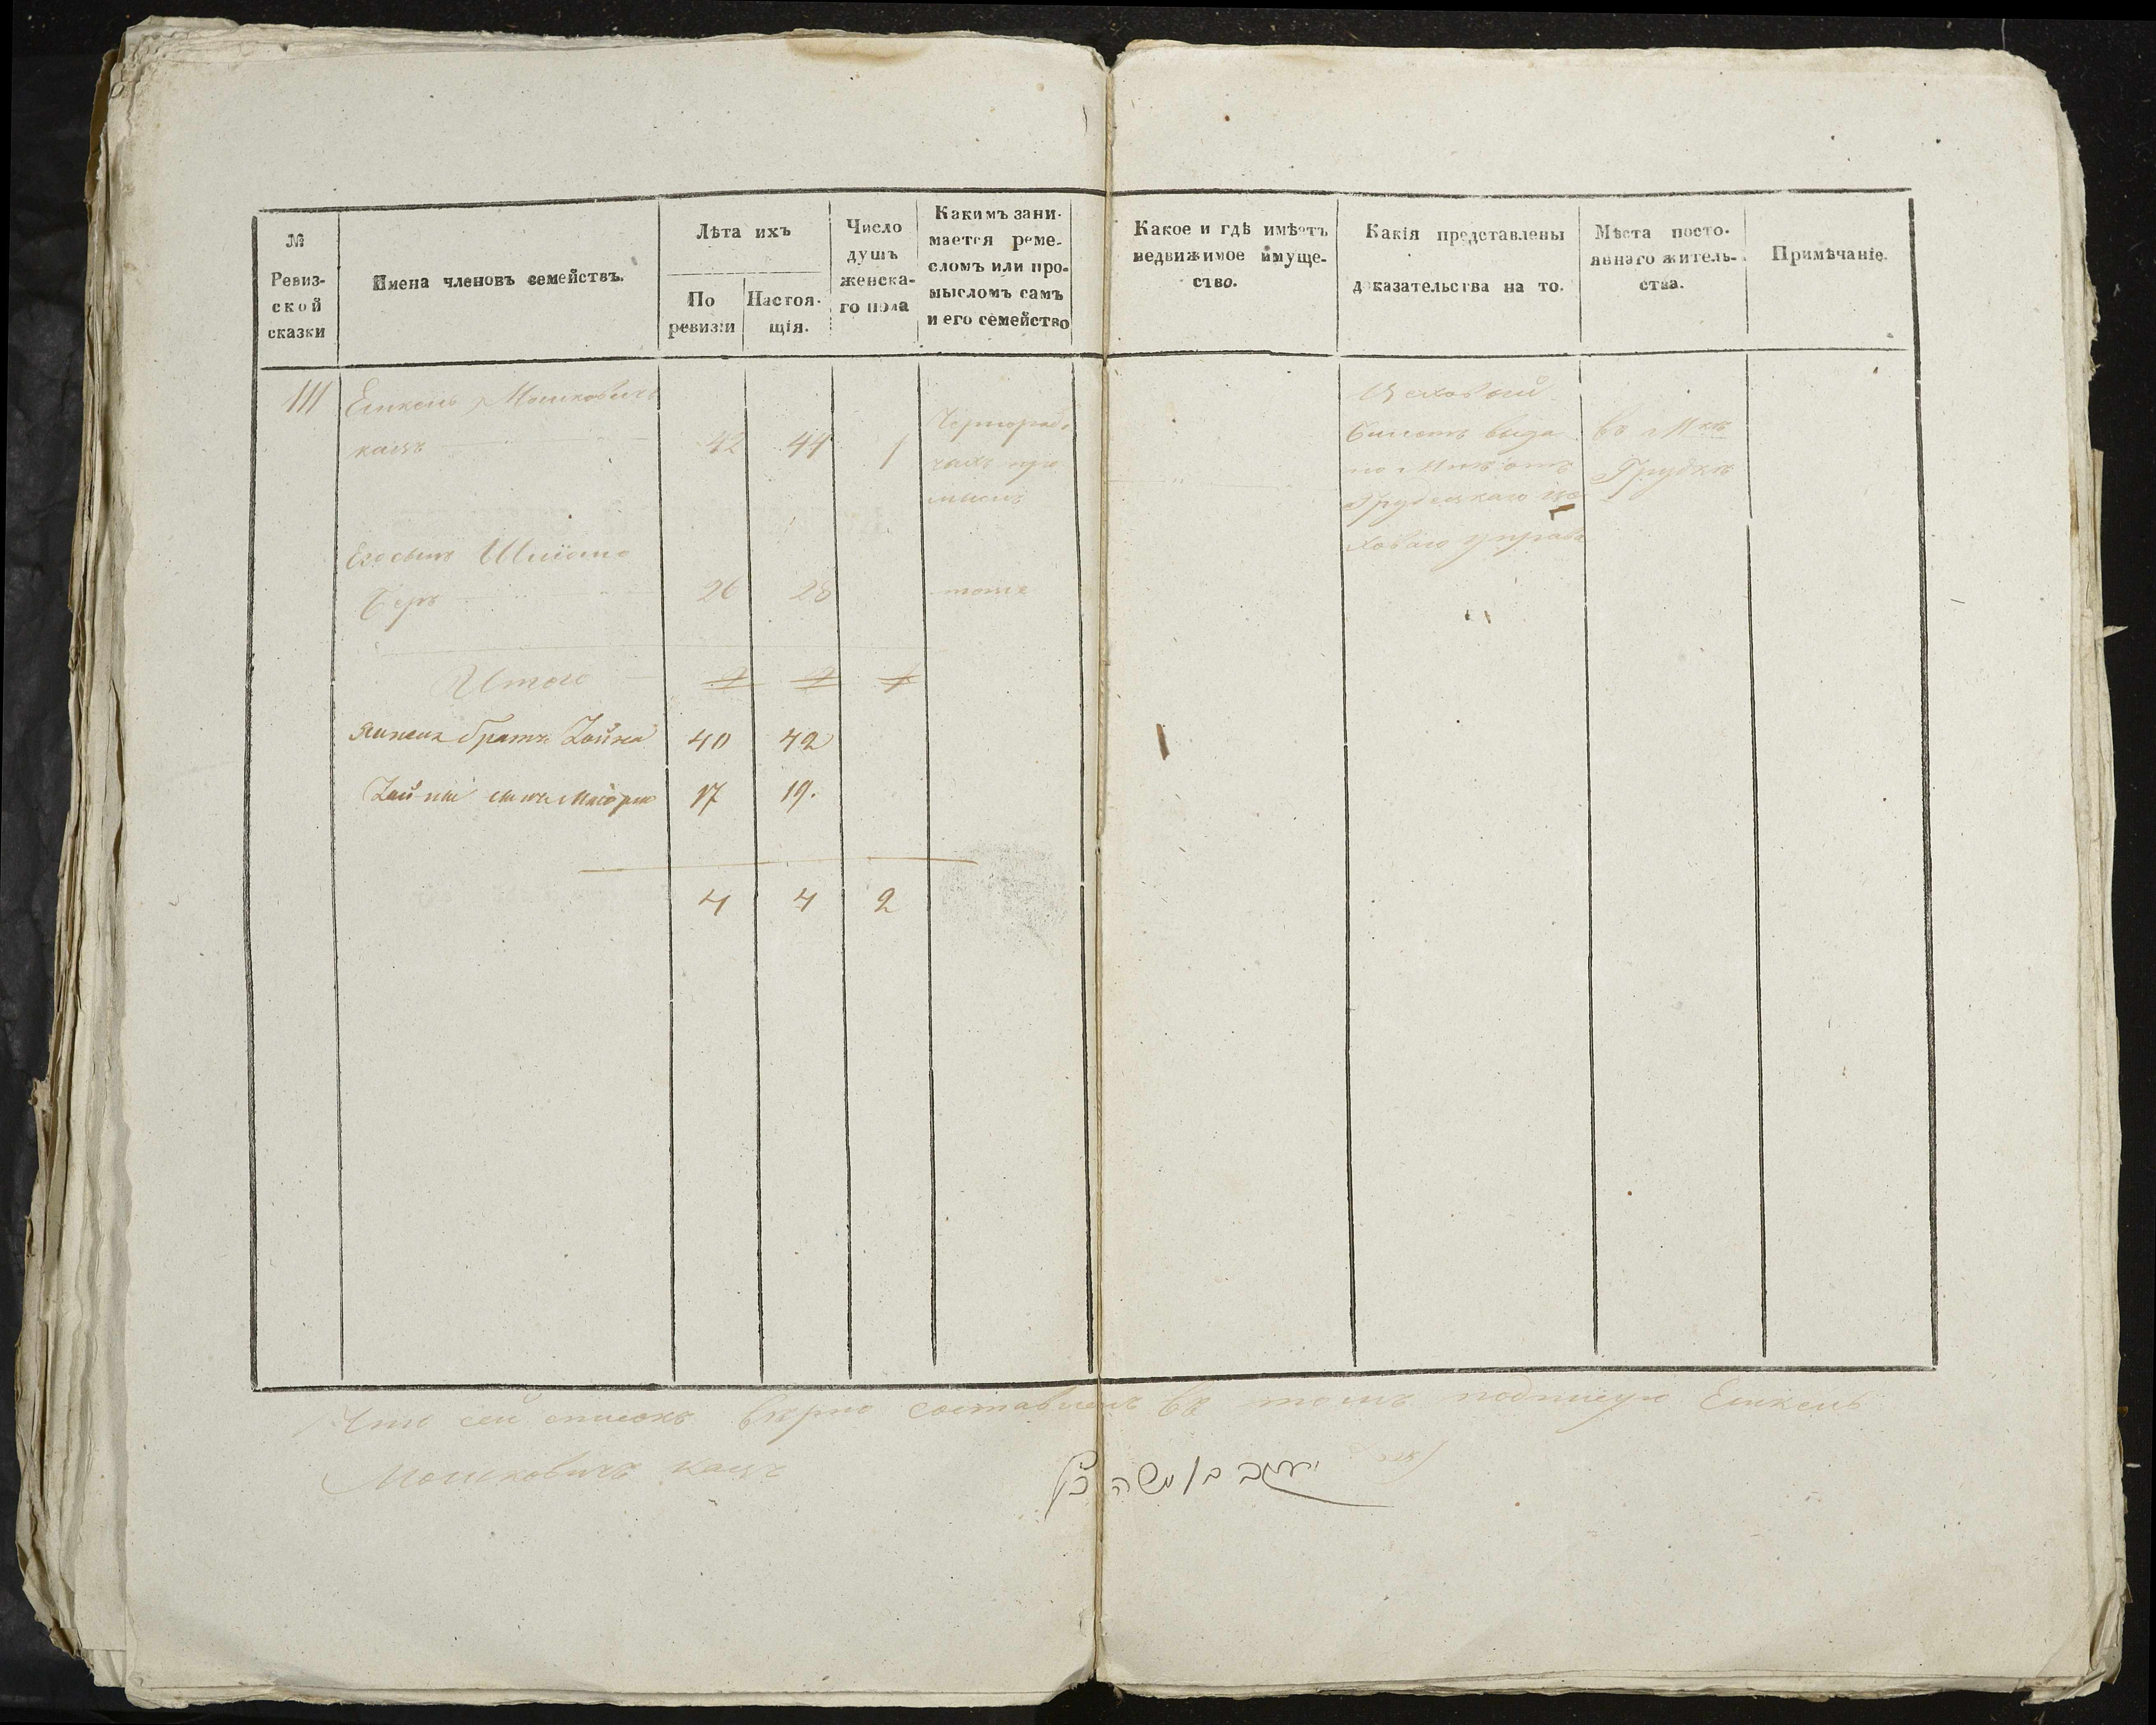 №
Ревиз-
ской
сказки
Имена членовъ семействъ.
Лѣта ихъ
По
ревизіи
Настоя-
щія.
Число
душъ
женска-
го пола
Какимъ зани-
мается реме-
сломъ или про-
мысломъ самъ
и его семейство
Какое и гдѣ имѣетъ
недвижимое имуще-
ство.
Какія представлены
доказательства на то.
Мѣста посто-
яннаго житель-
ства.
Примѣчаніе.
111
Емкель Мошковичъ
кацъ 42 44 1
Чернораб
чимъ про
мысл
Цеховый
билетъ выда
отъ
Грудецкаго це
ховаго управ
Во Мкѣ
Грудкѣ
Его сынъ Шліомо
Беръ 26 28 тоже
Итого 2 2 1
братъ 40 42
сынъ 17 19.
4 4 2
Что сей списокъ вѣрно составленъ въ томъ подпишую Емкель
Мошковичъ кацъ
יעקב בן משה כץ